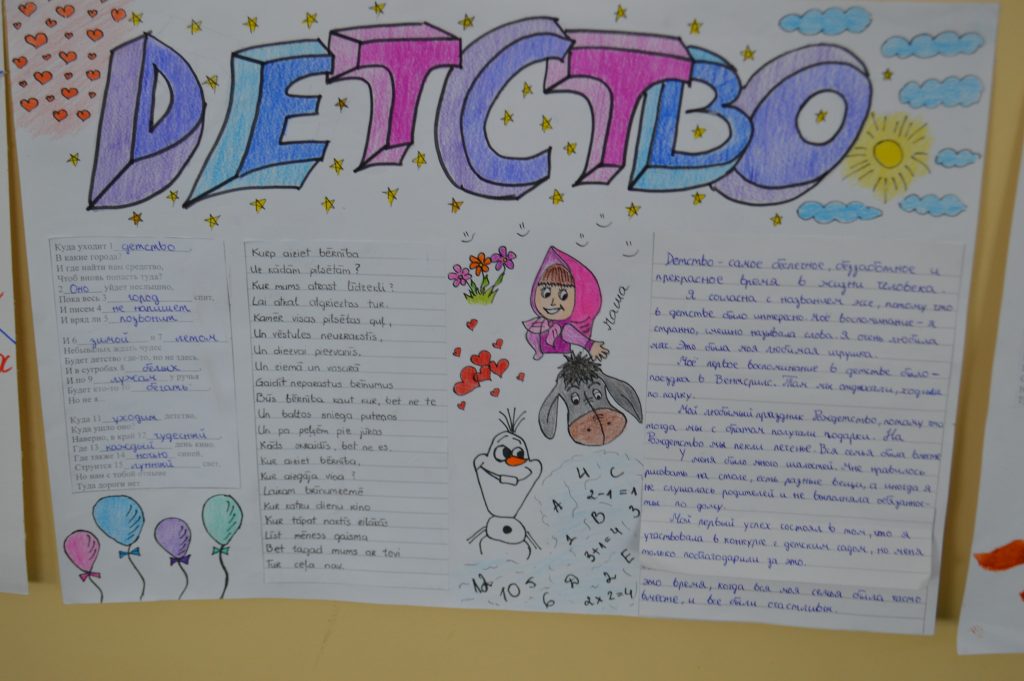 ДЕТСТВО
Куда уходит 1 детство
В какие города?
И где найти нам средство,
Чтоб вновь попасть туда?
2 Оно уйдет неслышно,
Пока весь 3 город спит,
И писем 4 не напишет
И вряд ли 5 позвонит.
И 6 зимой и 7 летом
Небывалых ждать чудес
Будет детство где-то, но не здесь.
И в сугробах 8 белых
И по 9 лужам у ручья
Будет кто-то 10 бегать
Но не я.
Куда 11 уходит детство,
Куда ушло оно?
Наверно, в край 12 чудесный
Где 13 каждый день кино.
Где также 14 ночью синей,
Струится 15 лунный свет,
Но нам с тобой отныне
Туда дороги нет.
Kurp aiziet bērnība
Uz kādām pilsētām?
Kur mums atrast līdzekli?
Lai atkal atgrieztos tur.
Kamēr visas pilsētas guļ,
Un vēstules neuzrakstīs,
Un diezvai piezvanīs.
Un ziemā un vasarā
Gaidīt neparastus brīnumus
Būs bērnība kaut kur, bet ne te
Un baltos sniega putenos
Un pa peļķēm pie
Kāds skraidīs, bet ne es.
Kur aiziet bērnība,
Kur aizgāja viņa?
Laikam brīnumzemē
Kur katru dienu kino
Kur tāpat naktīs zilajās
Līst mēness gaisma
Bet tagad mums ar tevi
Tur ceļa nav.
Маша
Детство - самое облесное, беззаботное и
прекрасное время в жизни человека.
Я согласна с названием же, потому что
в детстве было интересно. Моё воспоминание - я
странно, смешно называла слова. Я очень любила
мяс. Это была моя любимая игрушка.
Моё первое воспоминание в детстве было -
поездка в Вентспилс. Там мы отдыхали, ходили
по парку.
Мой любимый праздник Рождество, потому что
тогда мы с братом получали подарки. На
Рождество мы пекли печенье. Вся семья была вместе
У меня было много шалостей. Мне нравилось
рисовать на столе, есть разные вещи, а иногда я
не слушалась родителей и не выполняла обязаннос-
ти по дому.
Мой первый успех состоял в том, что я
участвовала в конкурсе с детским садом, но меня
только поблагодарили за это.
это время, когда вся моя семья была часто
вместе, и все были счастливы.
4 C
2-1=1
A B 3
1 3+1=4
E
12 10 5 6 D 2
2x2=4